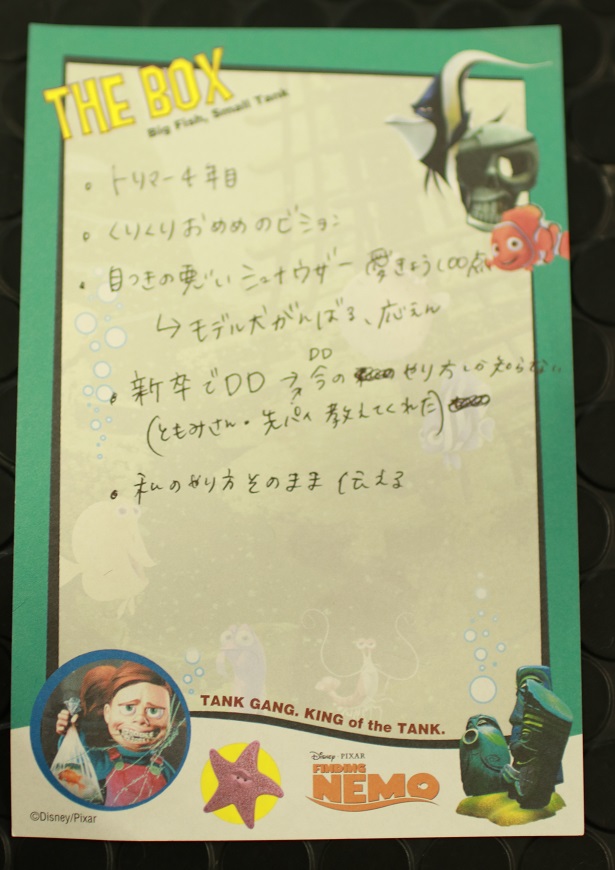 THE BOX
Big Fish, Small Tank
• トリマー4年目
• くりくりおめめのビション
• 目つきの悪いシュナウザー 愛きょう100点
↳ モデル犬がんばる、応えん
DD
• 新卒でDD → 今の やり方しか知らない
(ともみさん・先パイ 教えてくれた)
• 私のやり方そのまま伝える
TANK GANG. KING of the TANK.
Disney・PIXAR
FINDING
NEMO
©Disney/Pixar